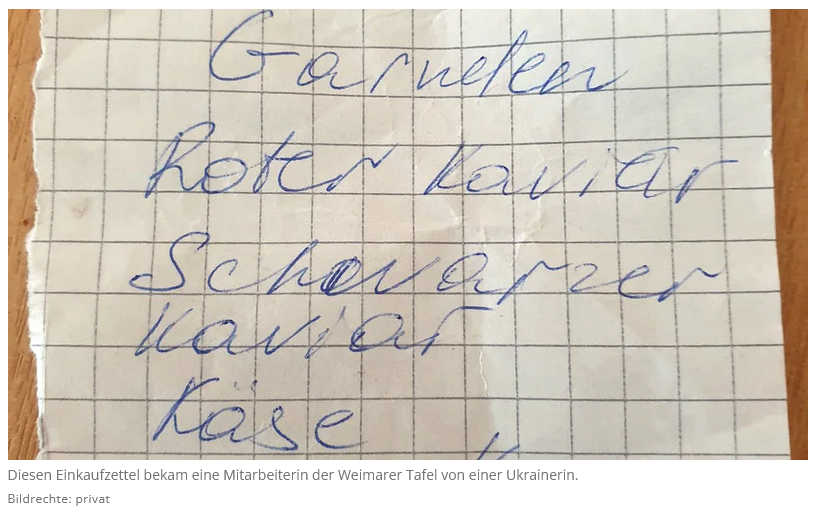 Garnelen
Roter Kaviar
Schwarzer
Kaviar
Käse
Diesen Einkaufzettel bekam eine Mitarbeiterin der Weimarer Tafel von einer Ukrainerin.
Bildrechte: privat